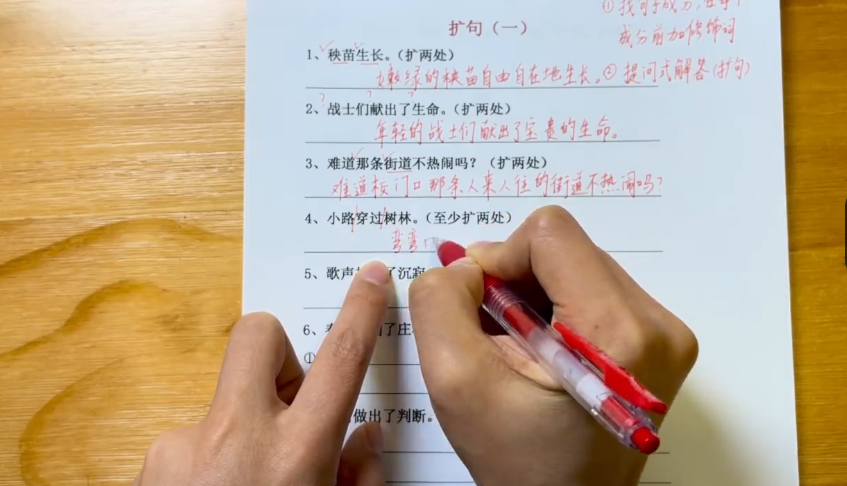 ① 找句子成分，在每个
成分前加修饰词
扩句（一）
1、秧苗生长。（扩两处）
嫩绿的秧苗自由自在地生长。
② 提问式解答（扩句）
2、战士们献出了生命。（扩两处）
年轻的战士们献出了宝贵的生命。
3、难道那条街道不热闹吗？（扩两处）
难道校门口那条人来人往的街道不热闹吗？
4、小路穿过树林。（至少扩两处）
弯弯
5、歌声 了沉寂
6、 了庄
①
做出了判断。